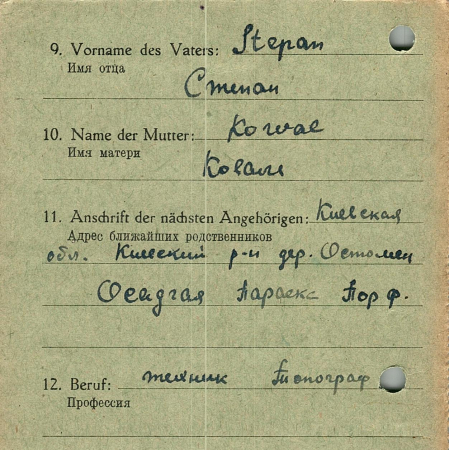 9. Vorname des Vaters: Stepan
Имя отца
Степан
10. Name der Mutter: Kowal
Имя матери
Коваль
11. Anschrift der nächsten Angehörigen: Киевская
Адрес ближайших родственников
обл. Киевский р-н дер. Остомец
Параска Порф.
12. Beruf: техник Типограф
Профессия